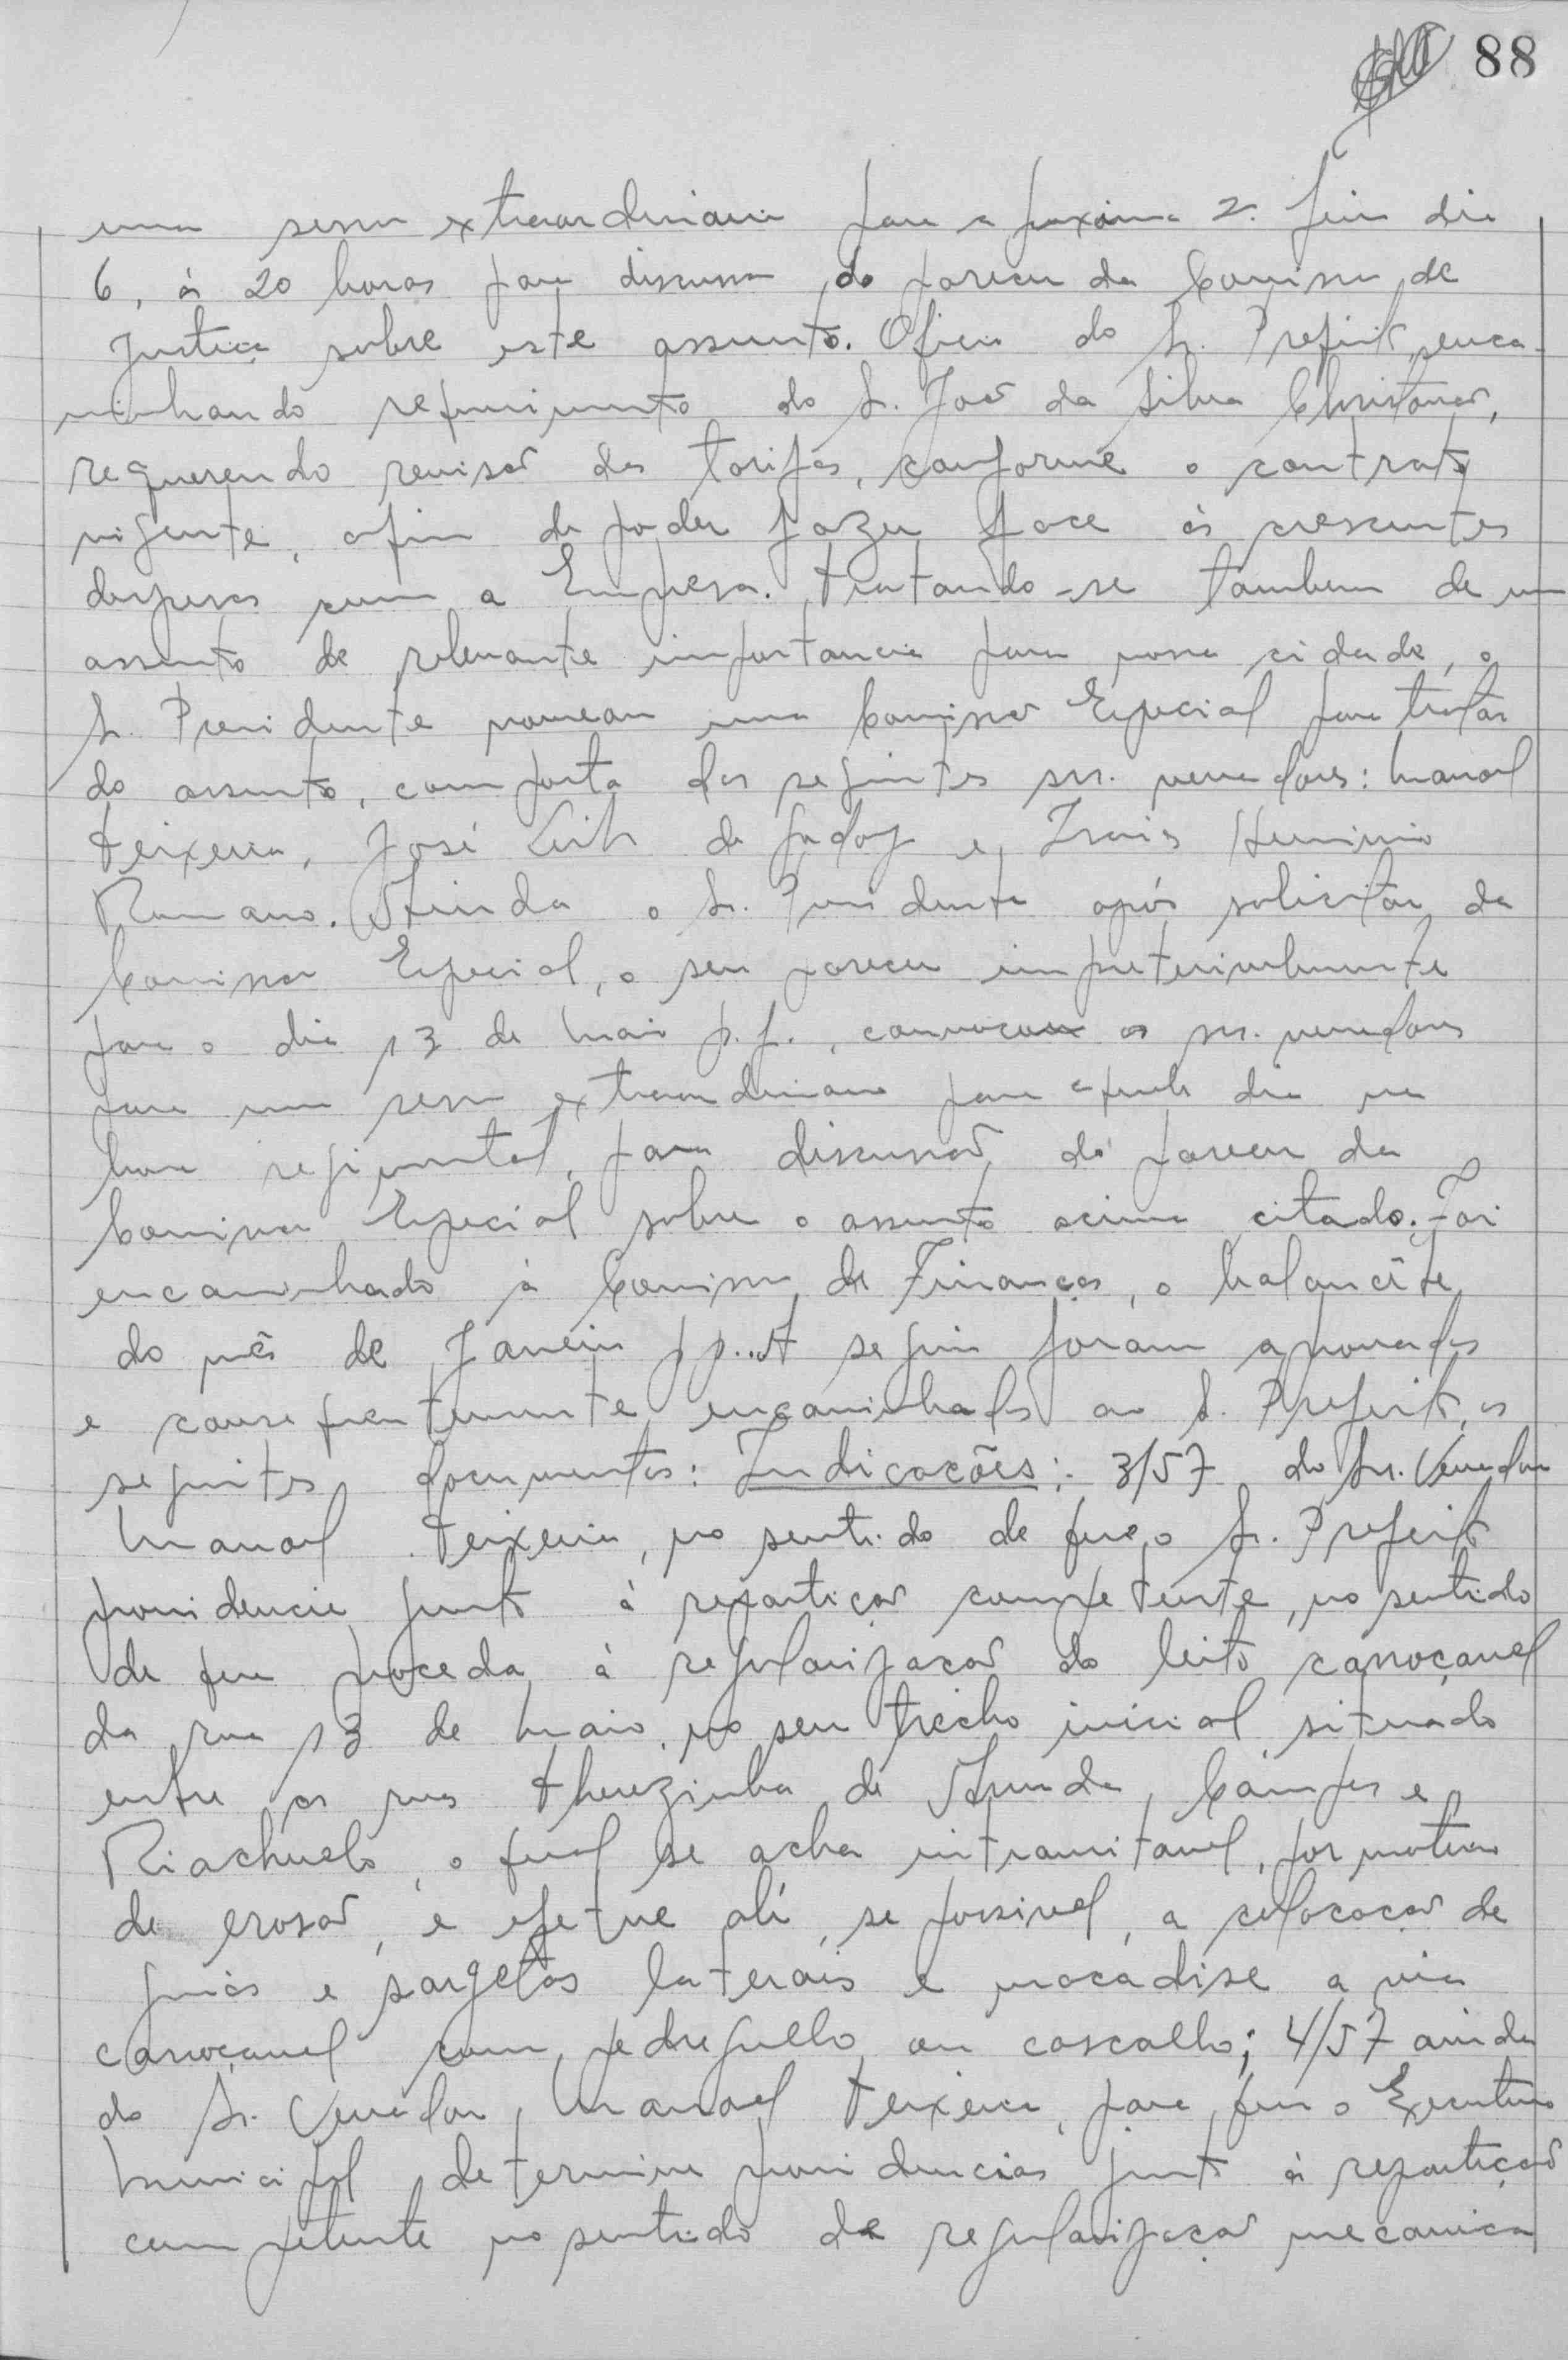 88
uma sessão extraordinaria para a proxima 2ª feira dia
6, ás 20 horas para discussão do parecer da Comissão de
Justiça sobre este assunto. Oficio do Sr. Prefeito, enca-
minhando requerimento do Sr. João da Silva Christovão,
requerendo revisão das tarifas, conforme o contrato
vigente, afim de poder fazer face ás crescentes
despesas com a Empresa. Tratando-se tambem de um
assunto de relevante importancia para nossa cidade, o
Sr. Presidente nomeou uma Comissão Especial para tratar
do assunto, composta dos seguintes srs. vereadores: Manoel
Teixeira, José Leite de Godoy e Herminio
Romano. Ainda o Sr. Presidente após solicitar da
Comissão Especial, o seu parecer impreterivelmente
para o dia 13 de Maio p.f., convocou os srs. vereadores
para uma sessão extraordinaria para aquele dia na
hora regimental, para discussão do parecer da
Comissão Especial sobre o assunto acima citado. Foi
encaminhado á Comissão de Finanças, o balancête
do mês de Janeiro pp.. A seguir foram aprovados
e consequentemente encaminhados ao Sr. Prefeito, os
seguintes documentos: Indicações: 3/57 do Sr. Vereador
Manoel Teixeira, no sentido de que o Sr. Prefeito
providencie junto á repartição competente, no sentido
de que proceda á regularização do leito carroçavel
da rua 13 de Maio, no seu trecho inicial situado
entre as ruas Therezinha de Arruda Campos e
Riachuelo, o qual se acha intransitavel, por motivo
de erosão, e efetue alí, se possivel, a colocação de
guias e sargetas laterais e macadise a via
carroçavel com pedregulho ou cascalho; 4/57 ainda
do Sr. Vereador Manoel Teixeira, para que o Executivo
Municipal determine providencias junto á repartição
competente no sentido da regularização mecanica